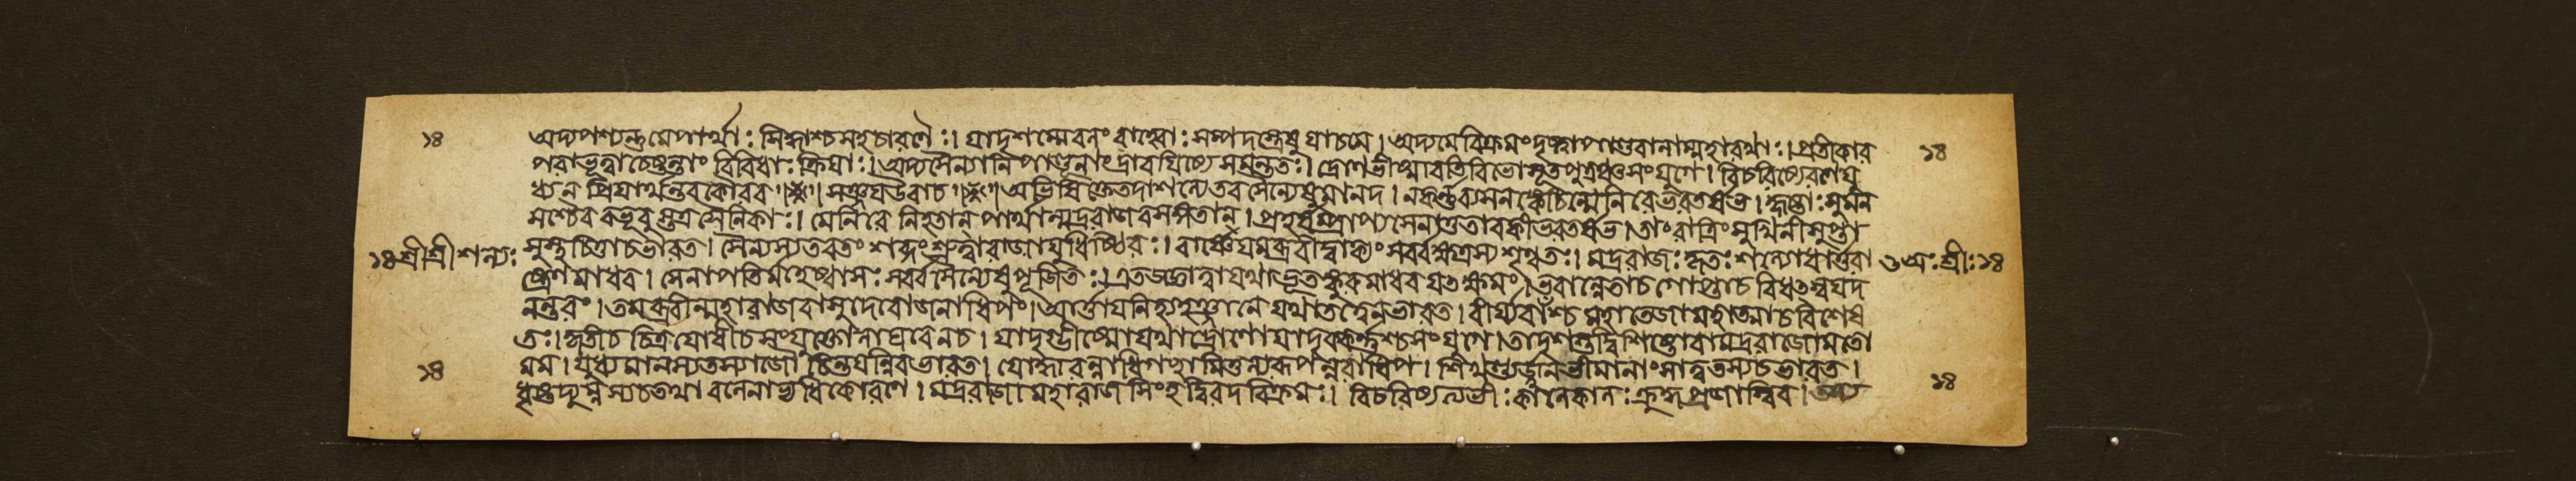 ১৪ অদ্যপশ্যন্তুমেপার্থাঃ সিদ্ধাশ্চসহচারণৈঃ। যাদৃশম্মেবলং বাহ্বোঃ সম্পদস্ত্রেষু যাচমে। অদ্যমেবিক্রমং দৃষ্ট্বাপাণ্ডবানাম্মহারথাঃ। প্রতীকার ১৪
পরাভূত্বাচেষ্টন্তাং বিবিধাঃ ক্রিয়াঃ। অদ্যসৈন্যানিপাণ্ডূনাং দ্রাবয়িষ্যে সমন্ততঃ। দ্রোণভীষ্মাবতিবিভোসূতপুত্রঞ্চসংযুগে। বিচরিষ্যেরণেযু
ধ্যন প্রিয়ার্থন্তবকৌরব। সঞ্জয়উবাচ। অভিষিক্তেতদাশল্যেতবসৈন্যেষুমানদ। নকর্ণব্যসনঙ্কেচিন্মেনিরেভরতর্ষভ। হৃষ্টাঃ সুমন
সশ্চৈব বভূবুস্তত্রসৈনিকাঃ। মেনিরে নিহতান্ পার্থান্মদ্ররাজবশঙ্গতান্। প্রহর্ষম্প্রাপ্যসেনাতুতাবকীভরতর্ষভ। তাং রাত্রিং সুখিনীসুপ্তা
১৪ শ্রীশ্রীশল্যঃ সুস্থচিত্তাচভারত। সৈন্যস্যতবতং শব্দং শ্রুত্বারাজাযুধিষ্ঠিরঃ। বার্ষ্ণেয়মব্রবীদ্বাক্যং সর্বক্ষত্রস্যশৃণ্বতঃ। মদ্ররাজঃ কৃতঃ শল্যোধার্ত্তরা ওঅঃ শ্রীঃ ১৪
ষ্ট্রেণ মাধব। সেনাপতির্মহেষ্বাসঃ সর্বসৈন্যেষুপূজিতঃ। এতজ্জ্ঞাত্বাযথাভূতঙ্কুরুমাধব যৎক্ষমং। ভবান্নেতাচগোপ্তাচ বিধৎস্বযদ
নন্তরং। তমব্রবীন্মহারাজবাসুদেবোজনাধিপং। আর্ত্তায়নিমহঞ্জানে যথাতত্ত্বেনভারত। বীর্য্যবাংশ্চ মহাতেজামহাত্মাচবিশেষ
তঃ। কৃতীচ চিত্রযোধীচসংযুক্তোলাঘবেনচ। যাদৃগ্ভীষ্মোযথাদ্রোণোযাদৃক্কর্ণশ্চসংযুগে। তাদৃশস্তদ্বিশিষ্টোবামদ্ররাজোমতো
১৪ মম। যুধ্যমানস্যতস্যাজৌ চিন্তয়ন্নিবভারত। যোদ্ধারন্নাধিগচ্ছামিতুল্যরূপন্নরাধিপ। শিখণ্ড্যর্জ্জুনভীমানাং সাত্বতস্যচভারত।
ধৃষ্টদ্যুম্নস্যচতথা বলেনাভ্যধিকোরণে। মদ্ররাজামহারাজ সিংহদ্বিরদবিক্রমঃ। বিচরিষ্যত্যভীঃ কালেকালঃ ক্রুদ্ধঃ প্রজাস্বিব। ১৪